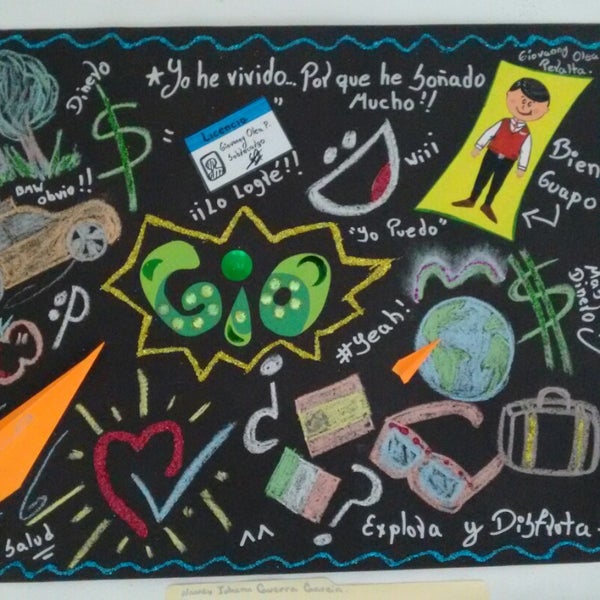 Giovanny Olea
Peralta.
★Yo he vivido... Por que he Soñado
Mucho!!
Dinero
$
Licencia
Giovanny Olea P.
¡¡Lo Logré!!
wiii
"Yo Puedo"
Bien
Guapo
BMW
obvio!!
GiO
#Yeah!
$
Mas
Dinero
¿
?
^^
Salud
Explora y Disfruta.